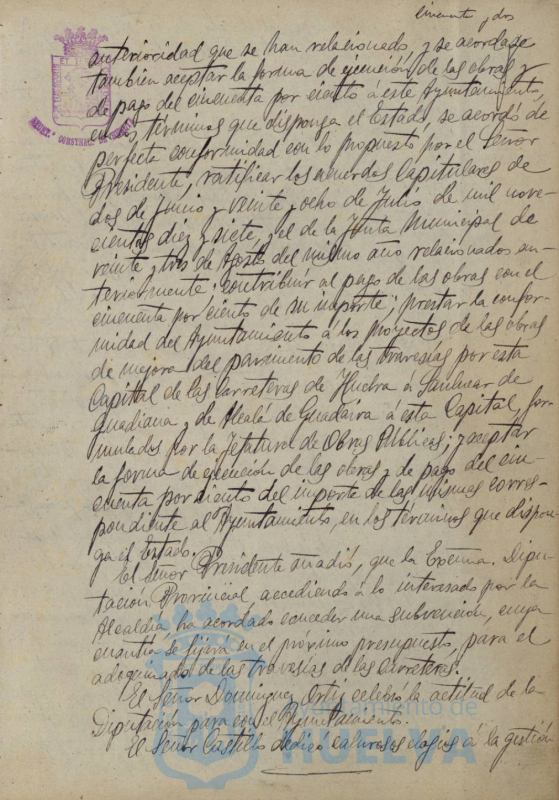 cincuenta y dos
anterioridad que se han relacionado, y se acordase
tambien aceptar la forma de ejecución de las obras y
de pago del cincuenta por ciento á este Ayuntamiento,
en los términos que disponga el Estado, se acordó de
perfecta conformidad con lo propuesto por el Señor
Presidente, ratificar los acuerdos Capitulares de
dos de Junio y veinte y ocho de Julio de mil nove-
cientos diez y siete, y el de la Junta Municipal de
veinte y tres de Agosto del mismo año relacionados an-
teriormente; contribuir al pago de las obras con el
cincuenta por ciento de su importe; prestar la confor-
midad del Ayuntamiento á los proyectos de las obras
de mejora del pavimento de las travesías por esta
Capital de las carreteras de Huelva á Sanlucar de
Guadiana y de Alcalá de Guadaira á esta Capital, for-
mulados por la Jefatura de Obras Públicas; y aceptar
la forma de ejecucion de las obras y de pago del cin-
cuenta por ciento del importe de las mismas corres-
pondiente al Ayuntamiento, en los términos que dispon-
ga el Estado.
El Señor Presidente añadió, que la Excma. Dipu-
tación Provincial accediendo á lo interesado por la
Alcaldía, ha acordado conceder una subvención, cuya
cuantía se fijará en el próximo presupuesto, para el
adoquinado de las travesías de las Carreteras.
El Señor Dominguez Ortiz celebró la actitud de la
Diputación para con el Ayuntamiento.
El Señor Castillo dedicó calurosos elogios á la gestión
Ayuntamiento de
HUELVA